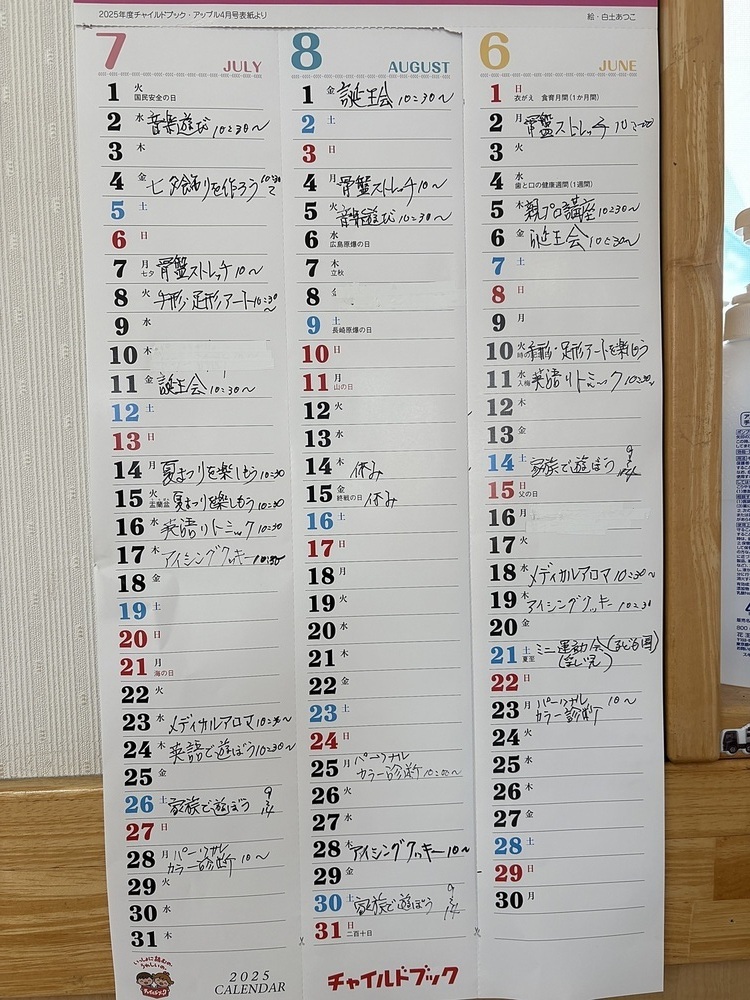 2025年度チャイルドブック・アップル4月号表紙より
絵・白土あつこ
7 JULY
1 火 国民安全の日
2 水 音楽遊び 10:30〜
3 木
4 金 七夕飾りを作ろう 10:30
5 土
6 日
7 月 七夕 骨盤ストレッチ 10〜
8 火 手形・足形アート 10:30〜
9 水
10 木
11 金 誕生会 10:30〜
12 土
13 日
14 月 夏まつりを楽しもう 10:30
15 火 盂蘭盆 夏まつりを楽しもう 10:30
16 水 英語リトミック 10:30
17 木 アイシングクッキー 10:30
18 金
19 土
20 日
21 月 海の日
22 火
23 水 メディカルアロマ 10:30〜
24 木 英語で遊ぼう 10:30〜
25 金
26 土 家族で遊ぼう 9〜14
27 日
28 月 パーソナル
カラー診断 10〜
29 火
30 水
31 木
いっしょに読むの、うれしいね。
チャイルドブック
2025
CALENDAR
8 AUGUST
1 金 誕生会 10:30〜
2 土
3 日
4 月 骨盤ストレッチ 10〜
5 火 音楽遊び 10:30〜
6 水 広島原爆の日
7 木 立秋
8
9 土 長崎原爆の日
10 日
11 月 山の日
12 火
13 水
14 木 休み
15 金 終戦の日 休み
16 土
17 日
18 月
19 火
20 水
21 木
22 金
23 土
24 日
25 月 パーソナル
カラー診断 10:00〜
26 火
27 水
28 木 アイシングクッキー 10〜
29 金
30 土 家族で遊ぼう 9〜14
31 日 二百十日
チャイルドブック
6 JUNE
1 日 衣がえ 食育月間(1か月間)
2 月 骨盤ストレッチ 10:00
3 火
4 水 歯と口の健康週間(1週間)
5 木 親プロ講座 10:30〜
6 金 誕生会 10:30〜
7 土
8 日
9 月
10 火 時の 手形・足形アートを楽しもう
11 水 入梅 英語リトミック 10:30〜
12 木
13 金
14 土 家族で遊ぼう 9〜14
15 日 父の日
16 月
17 火
18 水 メディカルアロマ 10:30〜
19 木 アイシングクッキー 10:30
20 金
21 土 夏至 ミニ運動会(子ども園)
22 日
23 月 パーソナル
カラー診断 10〜
24 火
25 水
26 木
27 金
28 土
29 日
30 月